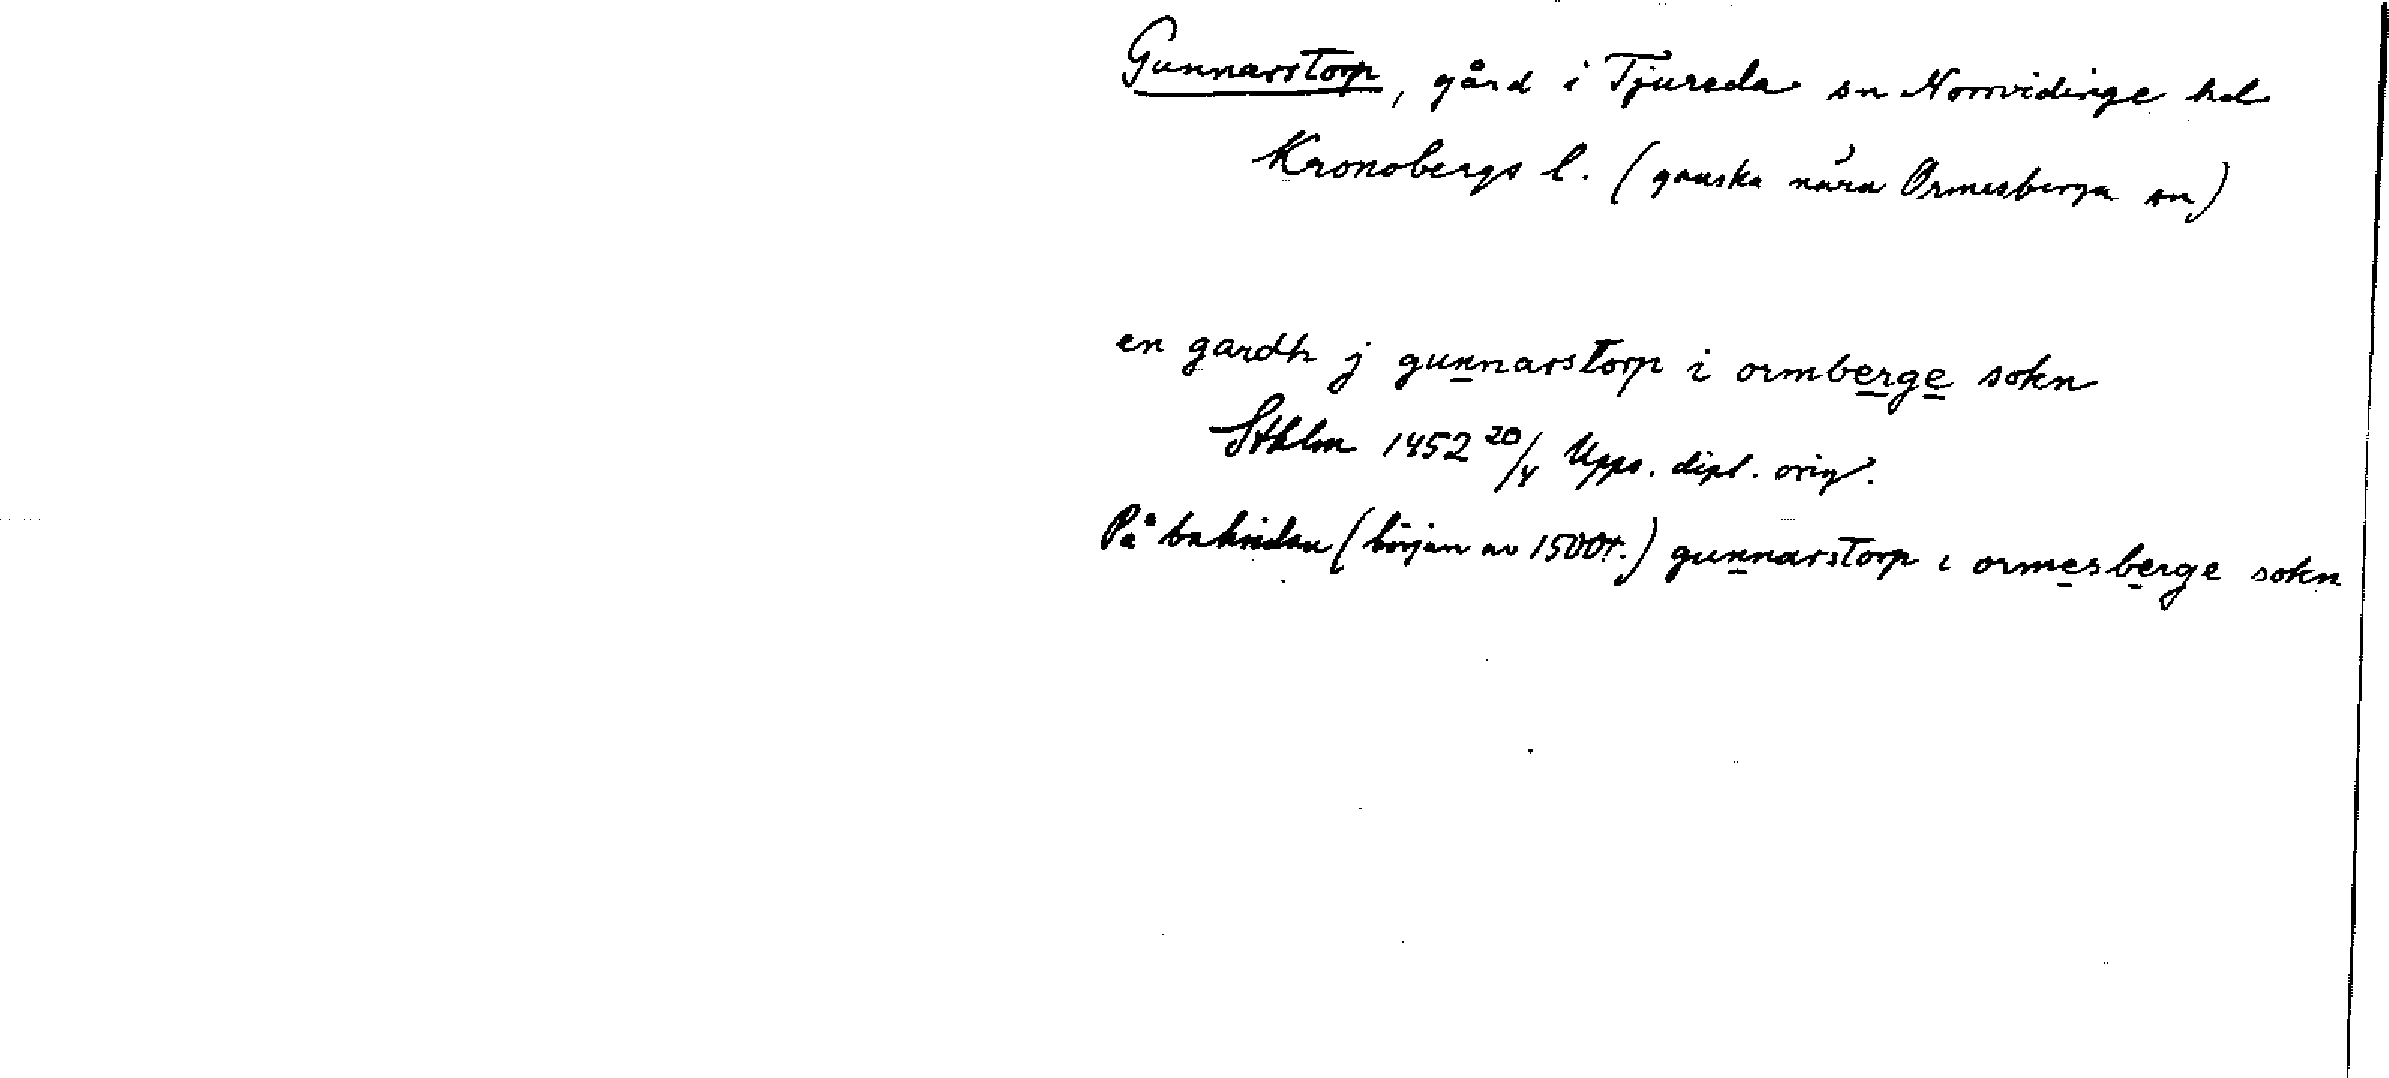 Gunnarstorp, gård i Tjureda sn Norrvidinge hd
Kronobergs l. (ganska nära Ormesberga sn)
en gardh j gunnarstorp i ormberge sokn
Sthlm 1452 20/4 Upps. dipl. orig.
På baksidan (början av 1500t.) gunnarstorp i ormesberge sokn